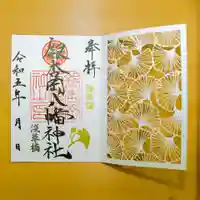 奉拝
銀杏岡八幡神社
浅草橋
令和五年 月 日